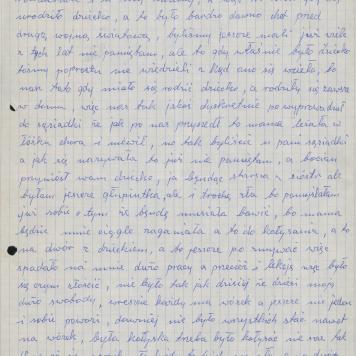 urodziło dziecko, a to było bardzo dawno choć przed
drugą wojną światową, byliśmy jeszcze mali już wiele
z tych lat nie pamiętam, ale to gdy właśnie było dziecko
to my poprostu nie wiedzieli z kąd ono się wzieło, bo
nas tato gdy miało się rodzić dziecko, a rodziły się zawsze
w domu, więc nas tak jakoś dyskretnie powyprowadzał
do sąsiadki że jak po nas przyszedł to mama leżała w
łóżku chora i mówił, no tak byliście u pani sąsiadki
a jak się nazywała to już nie pamiętam, a bocian
przyniósł wam dziecko, ja będąc starsza z sióstr ale
byłam jeszcze głupiutka, ale i trochę zła bo pomyślałam
już sobie o tym że będę musiała bawić, bo mama
będzie mnie ciągle zaganiała a to do kołysania, a to
na dwór z dzieckiem, a to jeszcze po zmywać więc
spadało na mnie dużo pracy a przecież i lekcje więc było
się czym złościć, nie było tak jak dzisiaj że dzieci mają
dużo swobody, wreszcie każdy ma wózek a jeszcze nie jeden
i sobie powozi, dawniej nie było wszystkich stać nawet
na wózek, była kołyska trzeba było kołysać nie raz tak